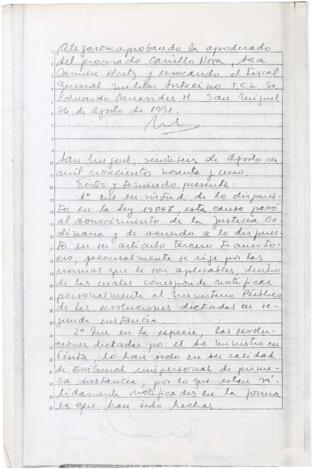 Alegaron aprobando la apoderado
del procesado Carrillo Nova, Axa
Carmen Hertz y revocando el Fiscal
General Militar T.C.L. Sr.
Eduardo H. San Miguel
26 de Agosto de 1991.
San Miguel, veintiseis de Agosto de
mil novecientos noventa y uno.
Vistos y teniendo presente:
1º Que en virtud de lo dispues
to en la Ley 19047, esta causa pasó
al conocimiento de la Justicia Or
dinaria y de acuerdo a lo dispues
to en su artículo tercero Transito
rio, procesalmente se rige por las
normas que le son aplicables, dentro
de las cuales corresponde notificar
personalmente al Ministerio Público
de las resoluciones dictadas en se
gunda instancia.
2º Que en la especie, las resolu
ciones dictadas por el Sr Ministro en
Visita, lo han sido en su calidad
de Tribunal unipersonal de prime
ra instancia, por lo que están vá
lidamente notificadas en la forma
en que han sido hechas.